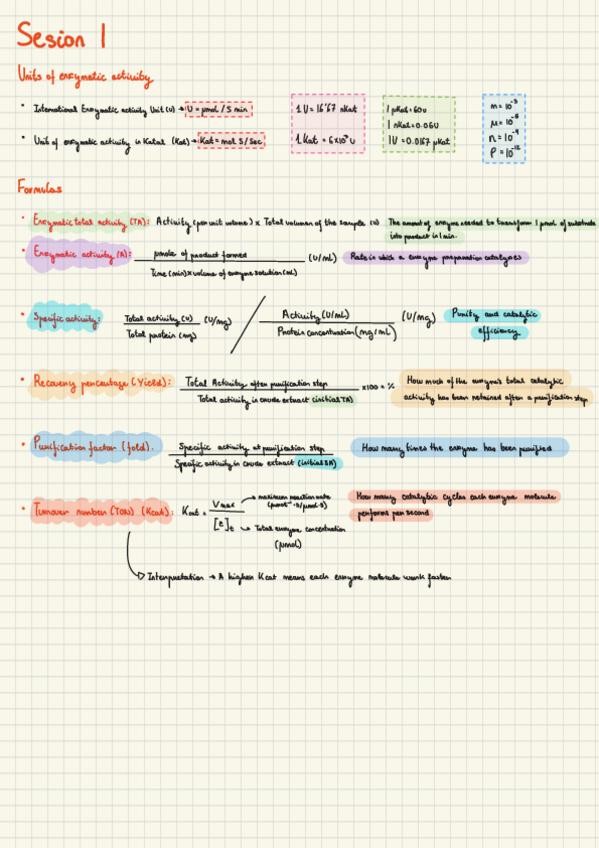 Sesion 1
Units of enzymatic activity
• International Enzymatic activity Unit (U) → U = µmol / S min
• Units of enzymatic activity in Katal (Kat) → Kat = mol S / sec
1 U = 16'67 nKat
1 Kat = 6x10⁷ U
1 µKat = 60U
1 nKat = 0.06U
1U = 0.0167 µKat
m = 10⁻³
µ = 10⁻⁶
n = 10⁻⁹
p = 10⁻¹²
Formulas
• Enzymatic total activity (TA): Activity (per unit volume) x Total volumen of the sample (U) The amount of enzyme needed to transform 1 µmol of substrate
into product in 1 min.
• Enzymatic activity (A): µmole of product formed (U/mL) Rate in which a enzyme preparation catalyzes
Time (min) x volume of enzyme solution (mL)
• Specific activity: Total activity (U) (U/mg) / Activity (U/mL) (U/mg) Purity and catalytic
Total protein (mg) Protein concentration (mg/mL) efficiency
• Recovery percentage (Yield): Total Activity after purification step x100 = % How much of the enzyme's total catalytic
Total activity in crude extract (initial TA) activity has been retained after a purification step
• Purification factor (fold). Specific activity at purification step How many times the enzyme has been purified
Specific activity in crude extract (initial SA)
• Turnover number (TON) (Kcat): Kcat = Vmax → maximum reaction rate How many catalytic cycles each enzyme molecule
performs per second
[E]t → Total enzyme concentration
(µmol)
Interpretation → A higher Kcat means each enzyme molecule work faster